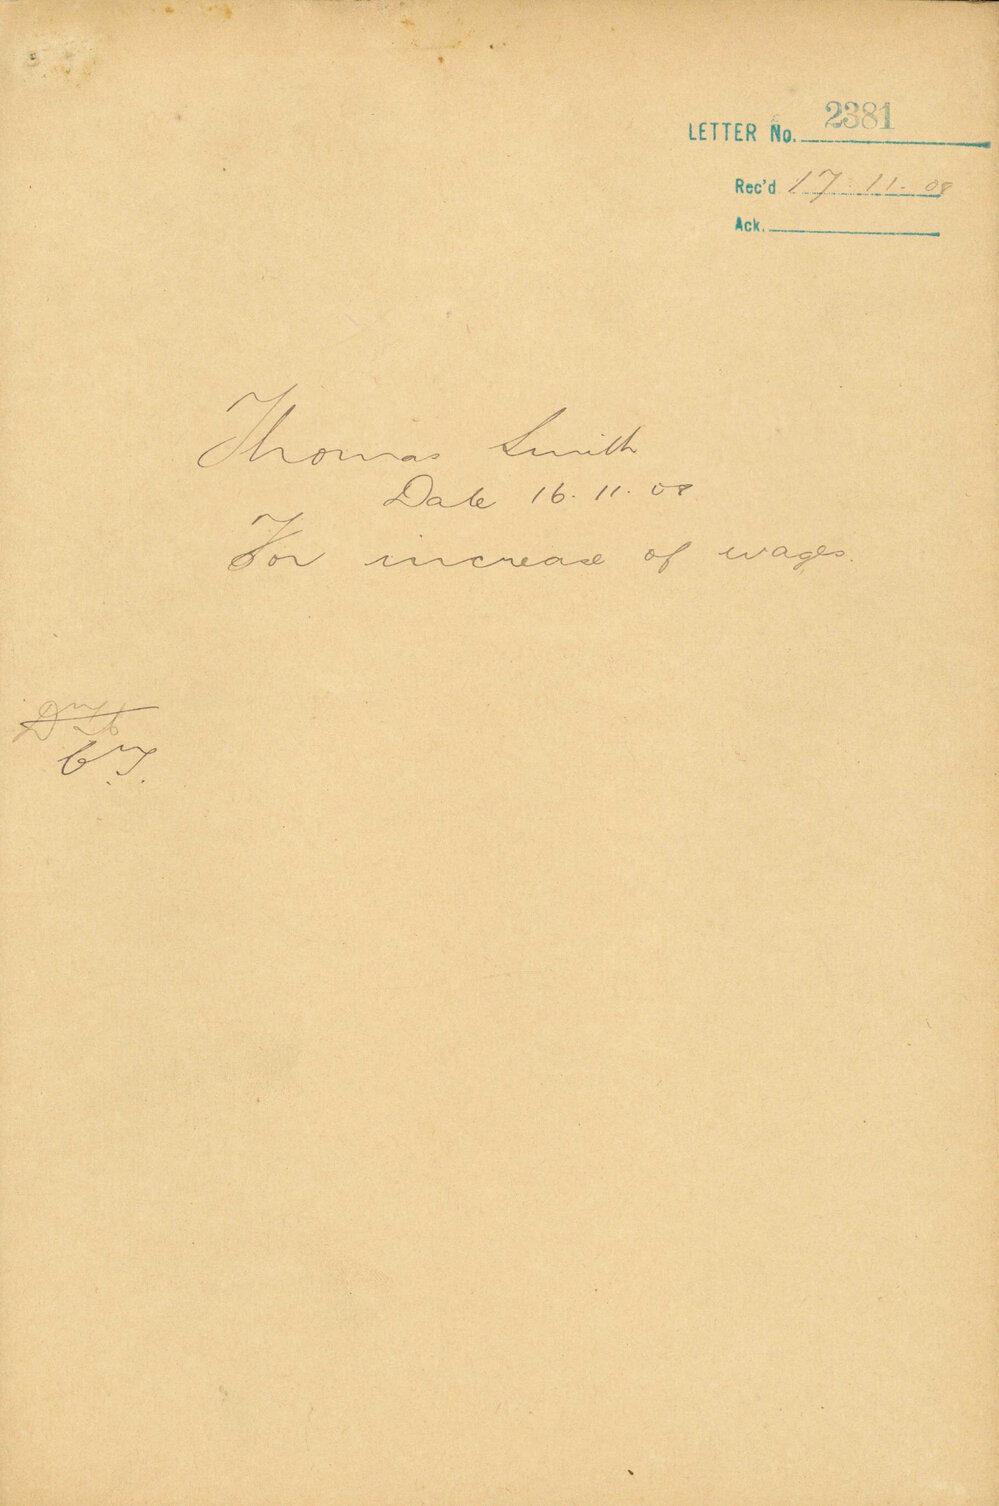 LETTER No. 2381
Rec'd 17.11.08
Ack.
Thomas Smith
Date 16.11.08
For increase of wages.